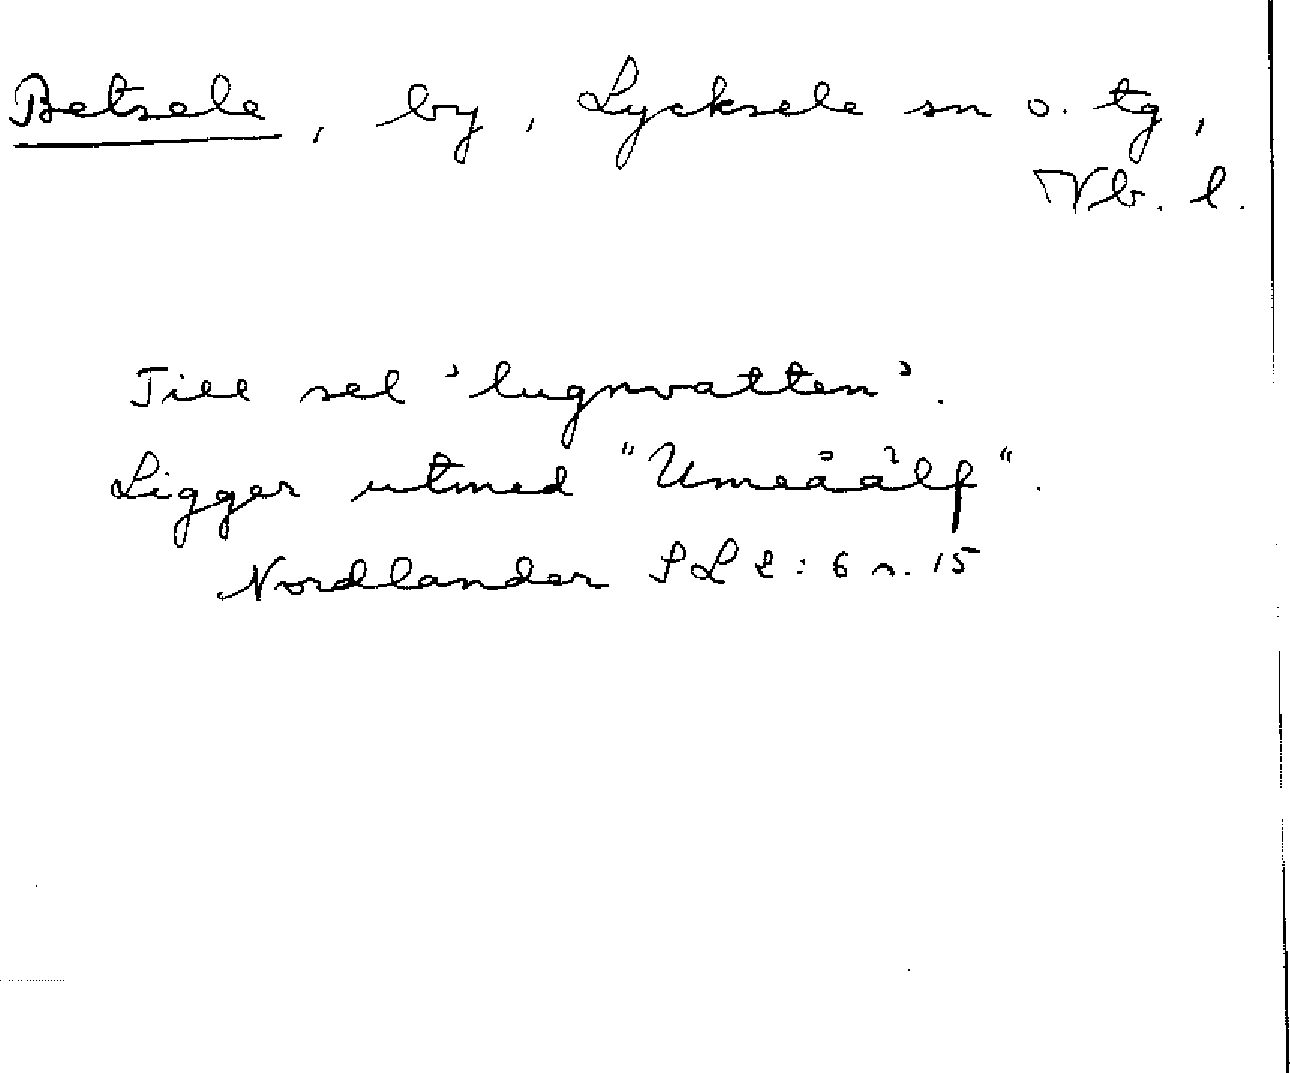 Betsele, by, Lycksele sn o. tg,
Vb. l.
Till sel 'lugnvatten'.
Ligger utmed "Umeåälf".
Nordlander SL 2:6 s. 15